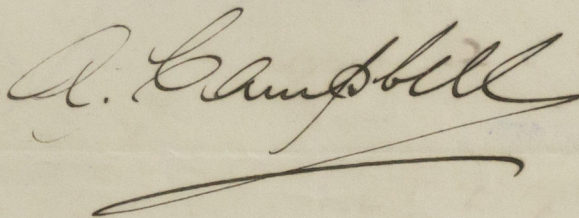 A. Campbell